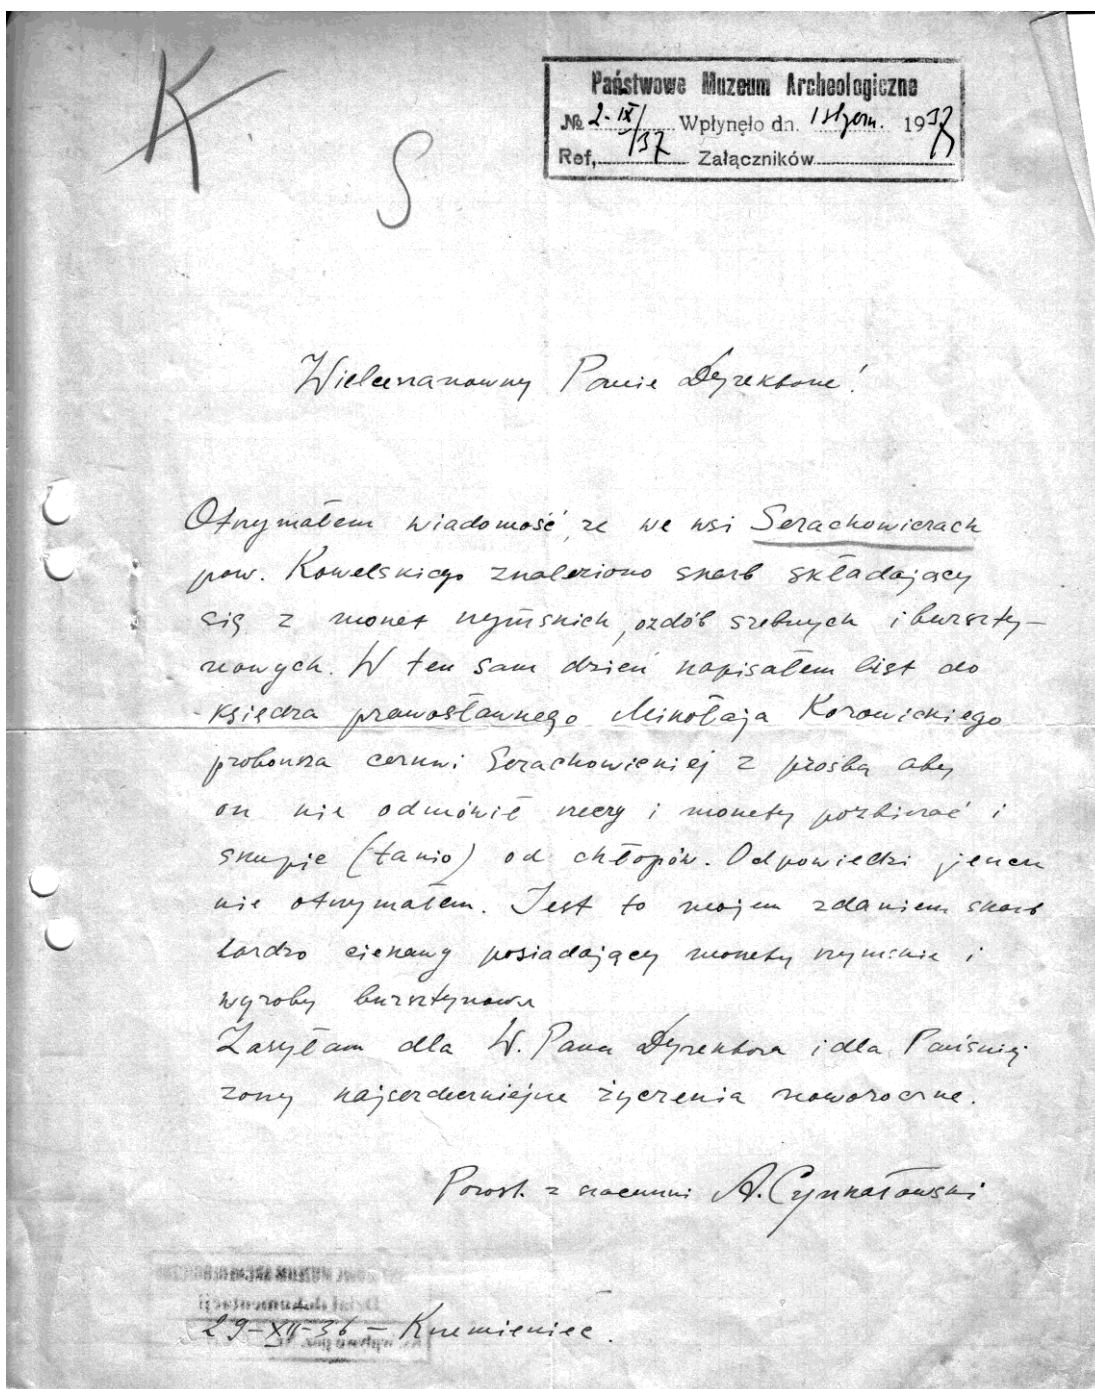 K
S
Państwowe Muzeum Archeologiczne
№ 2-IX/37 Wpłynęło dn. 1 stycz. 1937
Ref, Załączników
Wielceszanowny Panie Dyrektorze!
Otrzymałem wiadomość, że we wsi Serachowiczach
pow. Kowelskiego znaleziono skarb składający
się z monet rzymskich, ozdób srebnych i burszty-
nowych. W ten sam dzień napisałem list do
księdza prawosławnego Mikołaja Korowickiego
proboszcza cerkwi Serachowickiej z prośbą aby
on nie odmówił rzeczy i monety pozbierać i
skupić (tanio) od chłopów. Odpowiedzi jeszcze
nie otrzymałem. Jest to mojem zdaniem skarb
bardzo ciekawy posiadający monety rzymskie i
wyroby bursztynowe
Zasyłam dla W. Pana Dyrektora i dla Pańskiej
żony najserdeczniejsze życzenia noworoczne.
Pozost. z szacunkiem A. Cynkałowski
Dział dokumentacji
29-XII-36 – Krzemieniec.